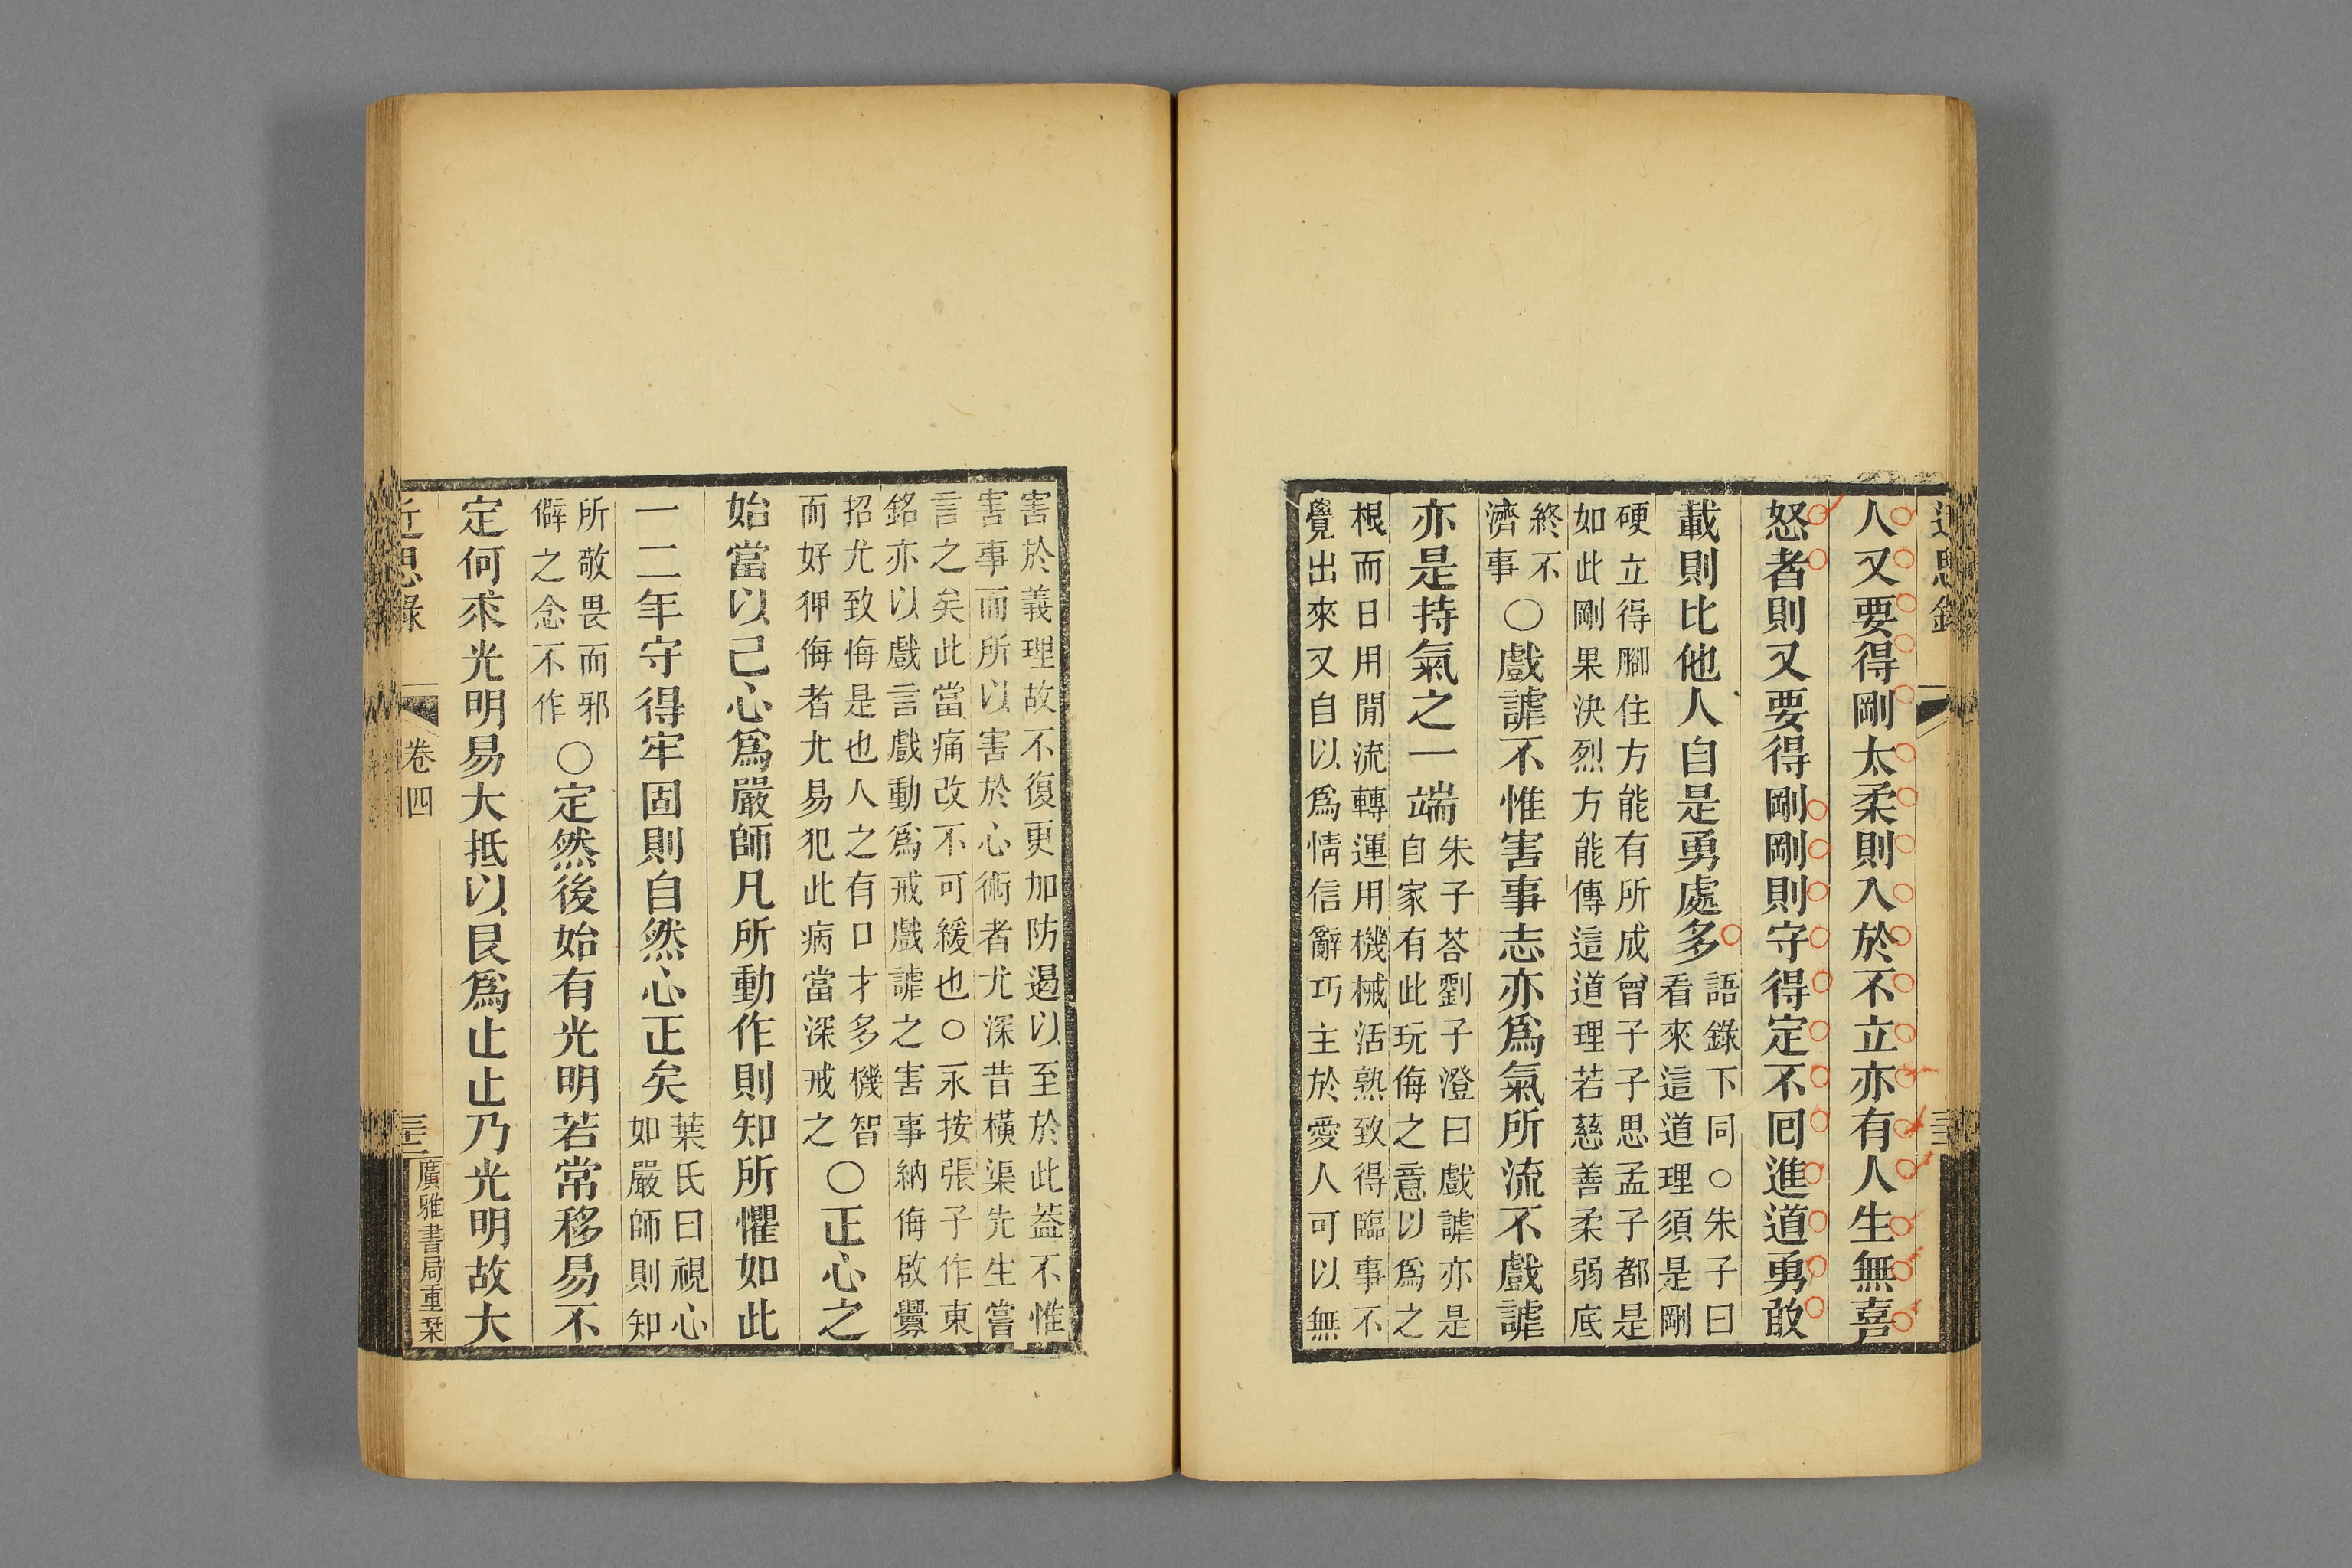 近思錄
人又要得剛太柔則入於不立亦有人生無喜
怒者則又要得剛剛則守得定不囘進道勇敢
載則比他人自是勇處多
語錄下同○朱子曰
看來這道理須是剛
硬立得腳住方能有所成曾子子思孟子都是
如此剛果決烈方能傳這道理若慈善柔弱底
終不
濟事
○戲謔不惟害事志亦爲氣所流不戲謔
亦是持氣之一端
朱子荅劉子澄曰戲謔亦是
自家有此玩侮之意以爲之
根而日用閒流轉運用機械活熟致得臨事不
覺出來又自以爲情信辭巧主於愛人可以無
害於義理故不復更加防遏以至於此葢不惟
害事而所以害於心術者尤深昔橫渠先生嘗
言之矣此當痛改不可緩也○永按張子作東
銘亦以戲言戲動爲戒戲謔之害事納侮啟釁
招尤致悔是也人之有口才多機智
而好狎侮者尤易犯此病當深戒之
○正心之
始當以己心爲嚴師凡所動作則知所懼如此
一二年守得牢固則自然心正矣
葉氏曰視心
如嚴師則知
所敬畏而邪
僻之念不作
○定然後始有光明若常移易不
定何求光明易大抵以艮爲止止乃光明故大
近思錄
卷四
廣雅書局重栞